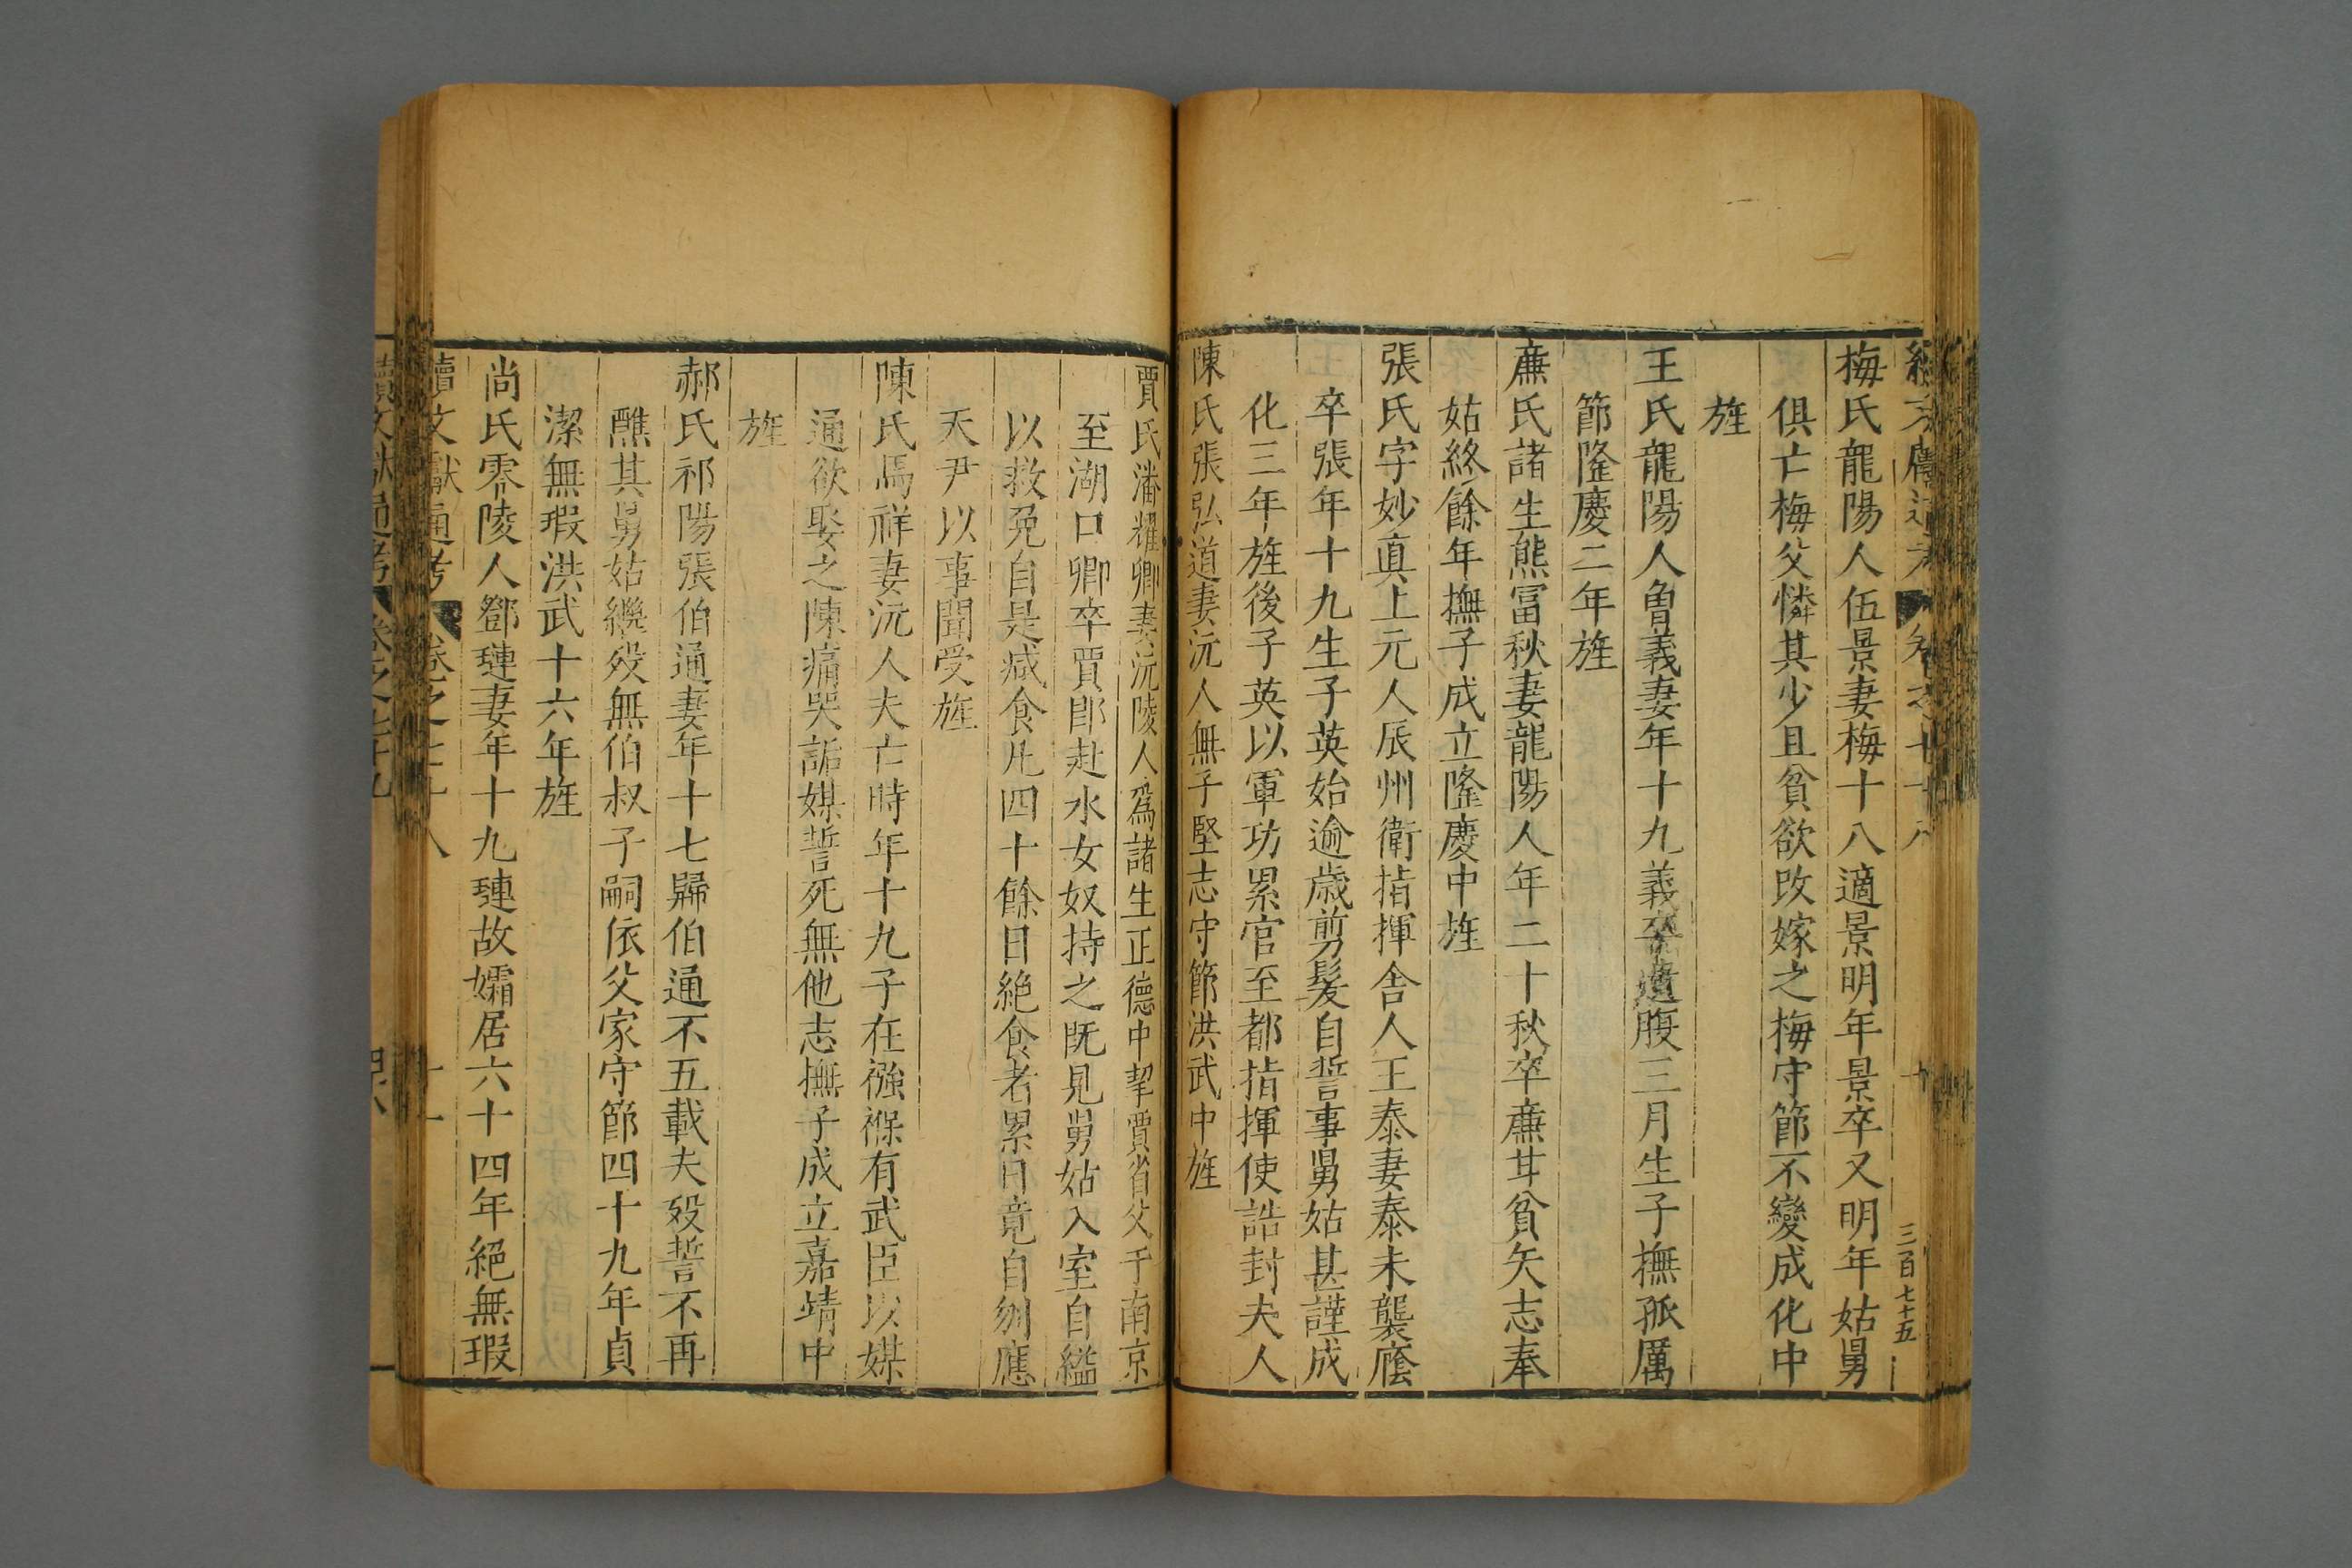 梅氏龍陽人伍景妻梅十八適景明年景卒又明年姑舅
俱亡梅父憐其少且貧欲改嫁之梅守節不變成化中
旌
王氏龍陽人魯義妻年十九義卒遺腹三月生子撫孤厲
節隆慶二年旌
亷氏諸生熊冨秋妻龍陽人年二十秋卒亷甘貧矢志奉
姑終餘年撫子成立隆慶中旌
張氏字妙真上元人辰州衛指揮舍人王泰妻泰未襲廕
卒張年十九生子英始逾歲剪髪自誓事舅姑甚謹成
化三年旌後子英以軍功累官至都指揮使誥封夫人
陳氏張弘道妻沅人無子堅志守節洪武中旌
三百七十五
賈氏潘耀卿妻沅陵人為諸生正德中挈賈省父于南京
至湖口卿卒賈即赴水女奴持之既見舅姑入室自縊
以救免自是减食凡四十餘日絶食者累日竟自刎應
天尹以事聞受旌
陳氏馬祥妻沅人夫亡時年十九子在襁褓有武臣以媒
通欲娶之陳痛哭詬媒誓死無他志撫子成立嘉靖中
旌
郝氏祁陽張伯通妻年十七歸伯通不五載夫歿誓不再
醮其舅姑繼歿無伯叔子嗣依父家守節四十九年貞
潔無瑕洪武十六年旌
尚氏零陵人鄧璉妻年十九璉故孀居六十四年絕無瑕
續文獻通考 卷之七十八 十一